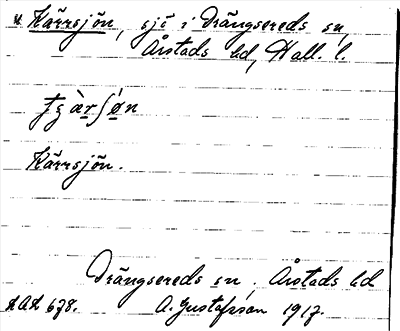 * Kärrsjön, sjö i Drängsereds sn,
Årstads hd, Hall. l.
Kärrsjön.
Drängsereds sn, Årstads hd
A. Gustafsson 1917.